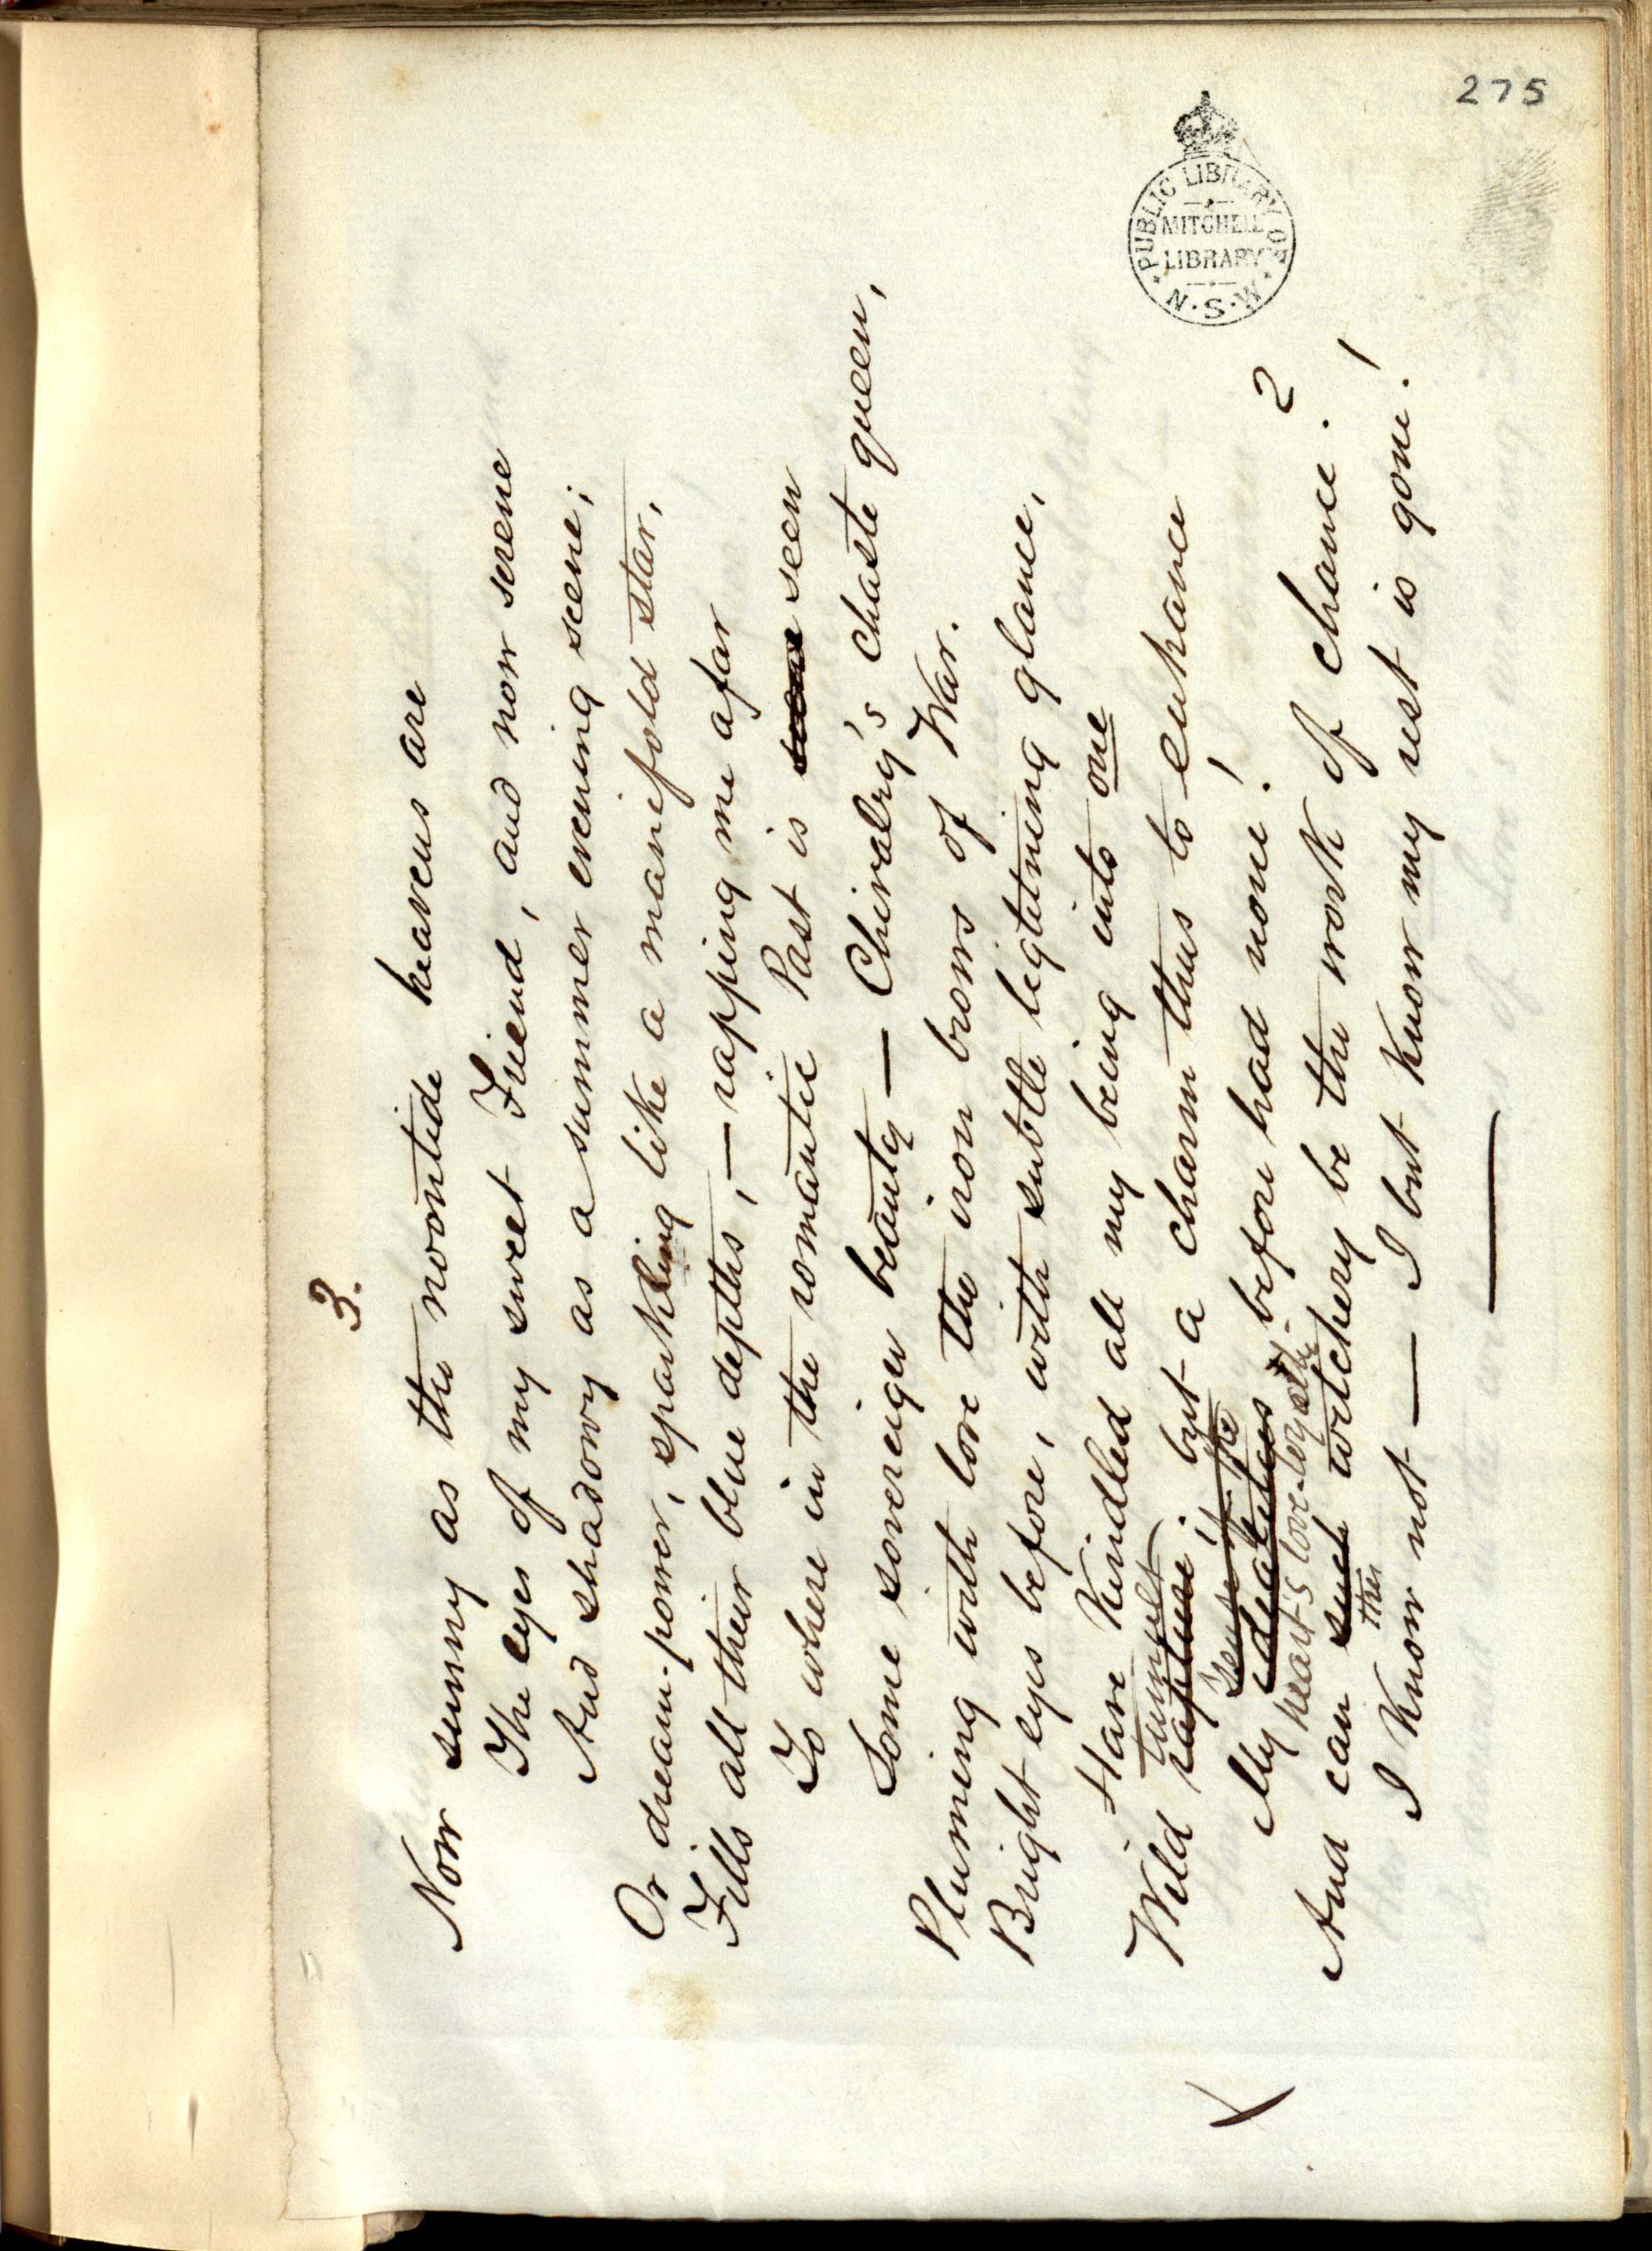 275
PUBLIC LIBRARY OF N.S.W.
MITCHELL
LIBRARY
3.
Now sunny as the noontide heavens are
The eyes of my sweet Friend, and now serene
And shadowy as a summer evening scene;
Or dream-power, sparkling like a manifold star,
Fills all their blue depths, — rapping me afar
To where in the romantic Past is seen
Some sovereign beauty — Chivalry's chaste queen,
Pluming with love the iron brows of War.
Bright eyes before, with subtle legtening glance,
Have kindled all my being into one
Wild rapture; but a charm thus to enhance
tumult
sense of the
My idealities before had none!
heart's love-loyalty
And can such witchery be the work of chance?
this
I know not — I but know my rest is gone!